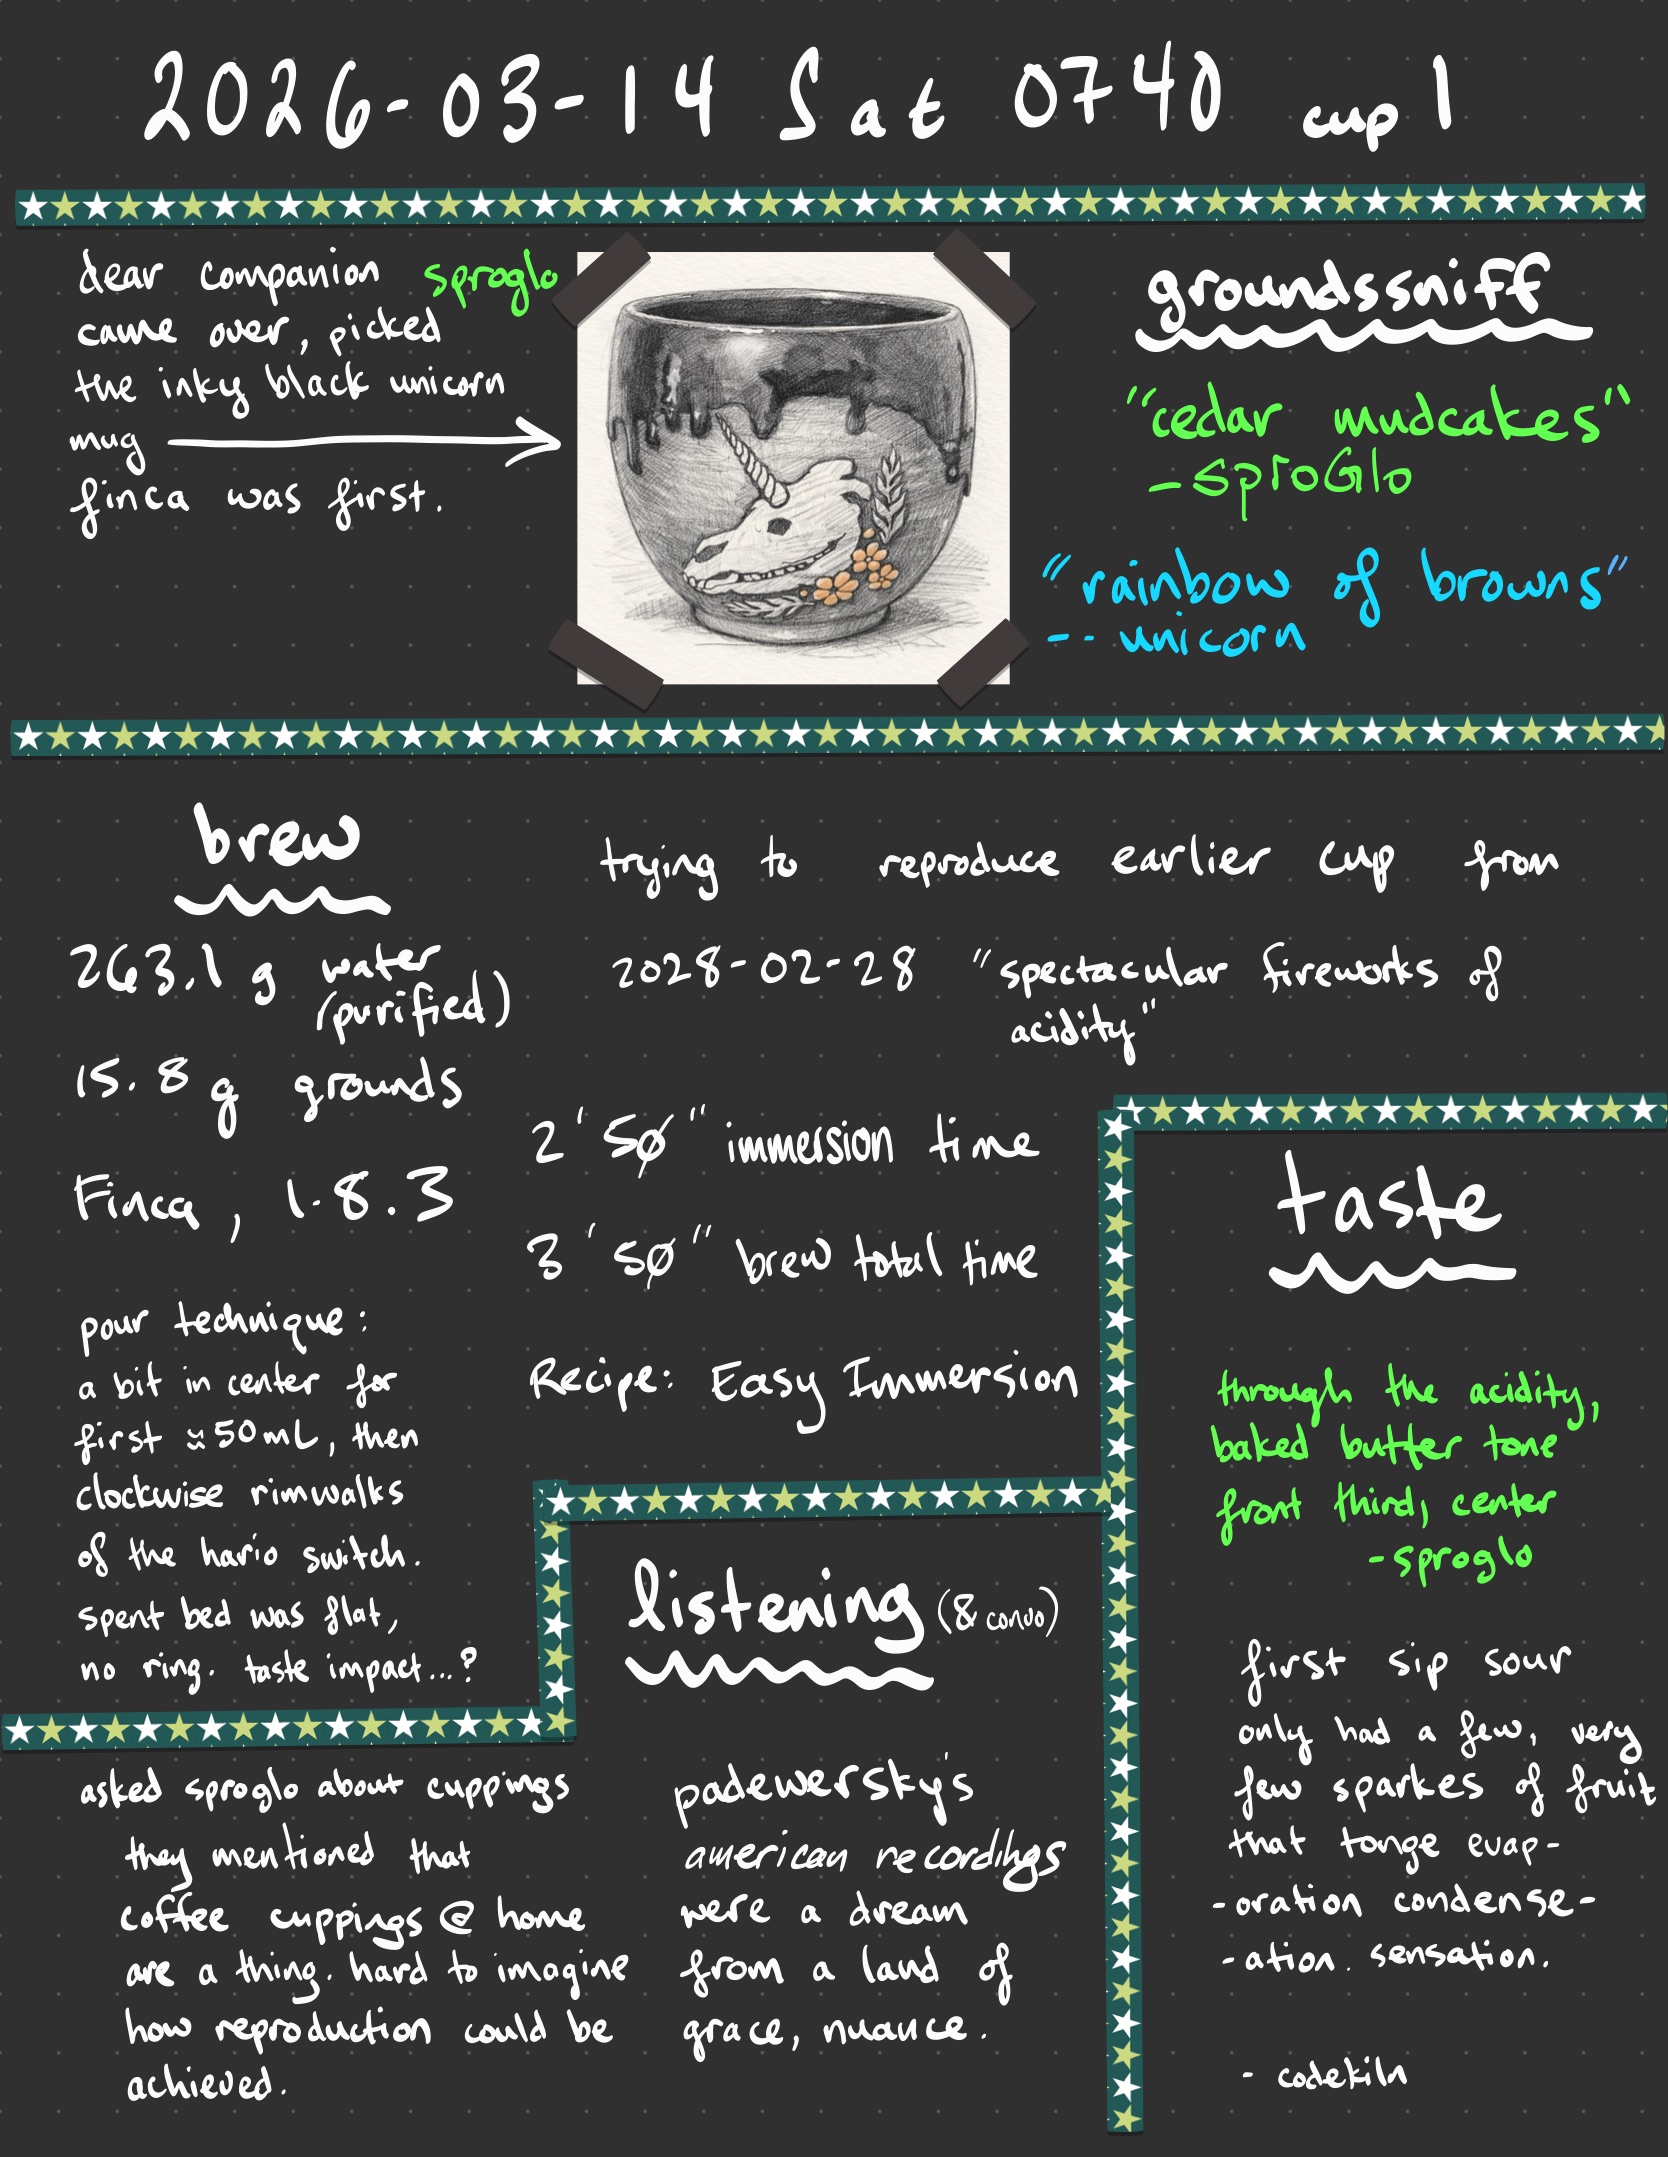 2026-03-14 Sat 0740 cup 1
dear companion sproglo
came over, picked
the inky black unicorn
mug
finca was first.
groundssniff
"cedar mudcakes"
- sproGlo
"rainbow of browns"
-- unicorn
brew
263.1 g water
(purified)
15.8 g grounds
Finca, 1.8.3
pour technique:
a bit in center for
first ≈50mL, then
clockwise rimwalks
of the hario switch.
spent bed was flat,
no ring. taste impact...?
trying to reproduce earlier cup from
2028-02-28 "spectacular fireworks of
acidity"
2'50" immersion time
3'50" brew total time
Recipe: Easy Immersion
listening (& convo)
asked sproglo about cuppings
they mentioned that
coffee cuppings @ home
are a thing. hard to imagine
how reproduction could be
achieved.
padewersky's
american recordings
were a dream
from a land of
grace, nuance.
taste
through the acidity,
baked butter tone
front third, center
-sproglo
first sip sour
only had a few, very
few sparkes of fruit
that tonge evap-
-oration condense-
-ation. sensation.
- codekiln